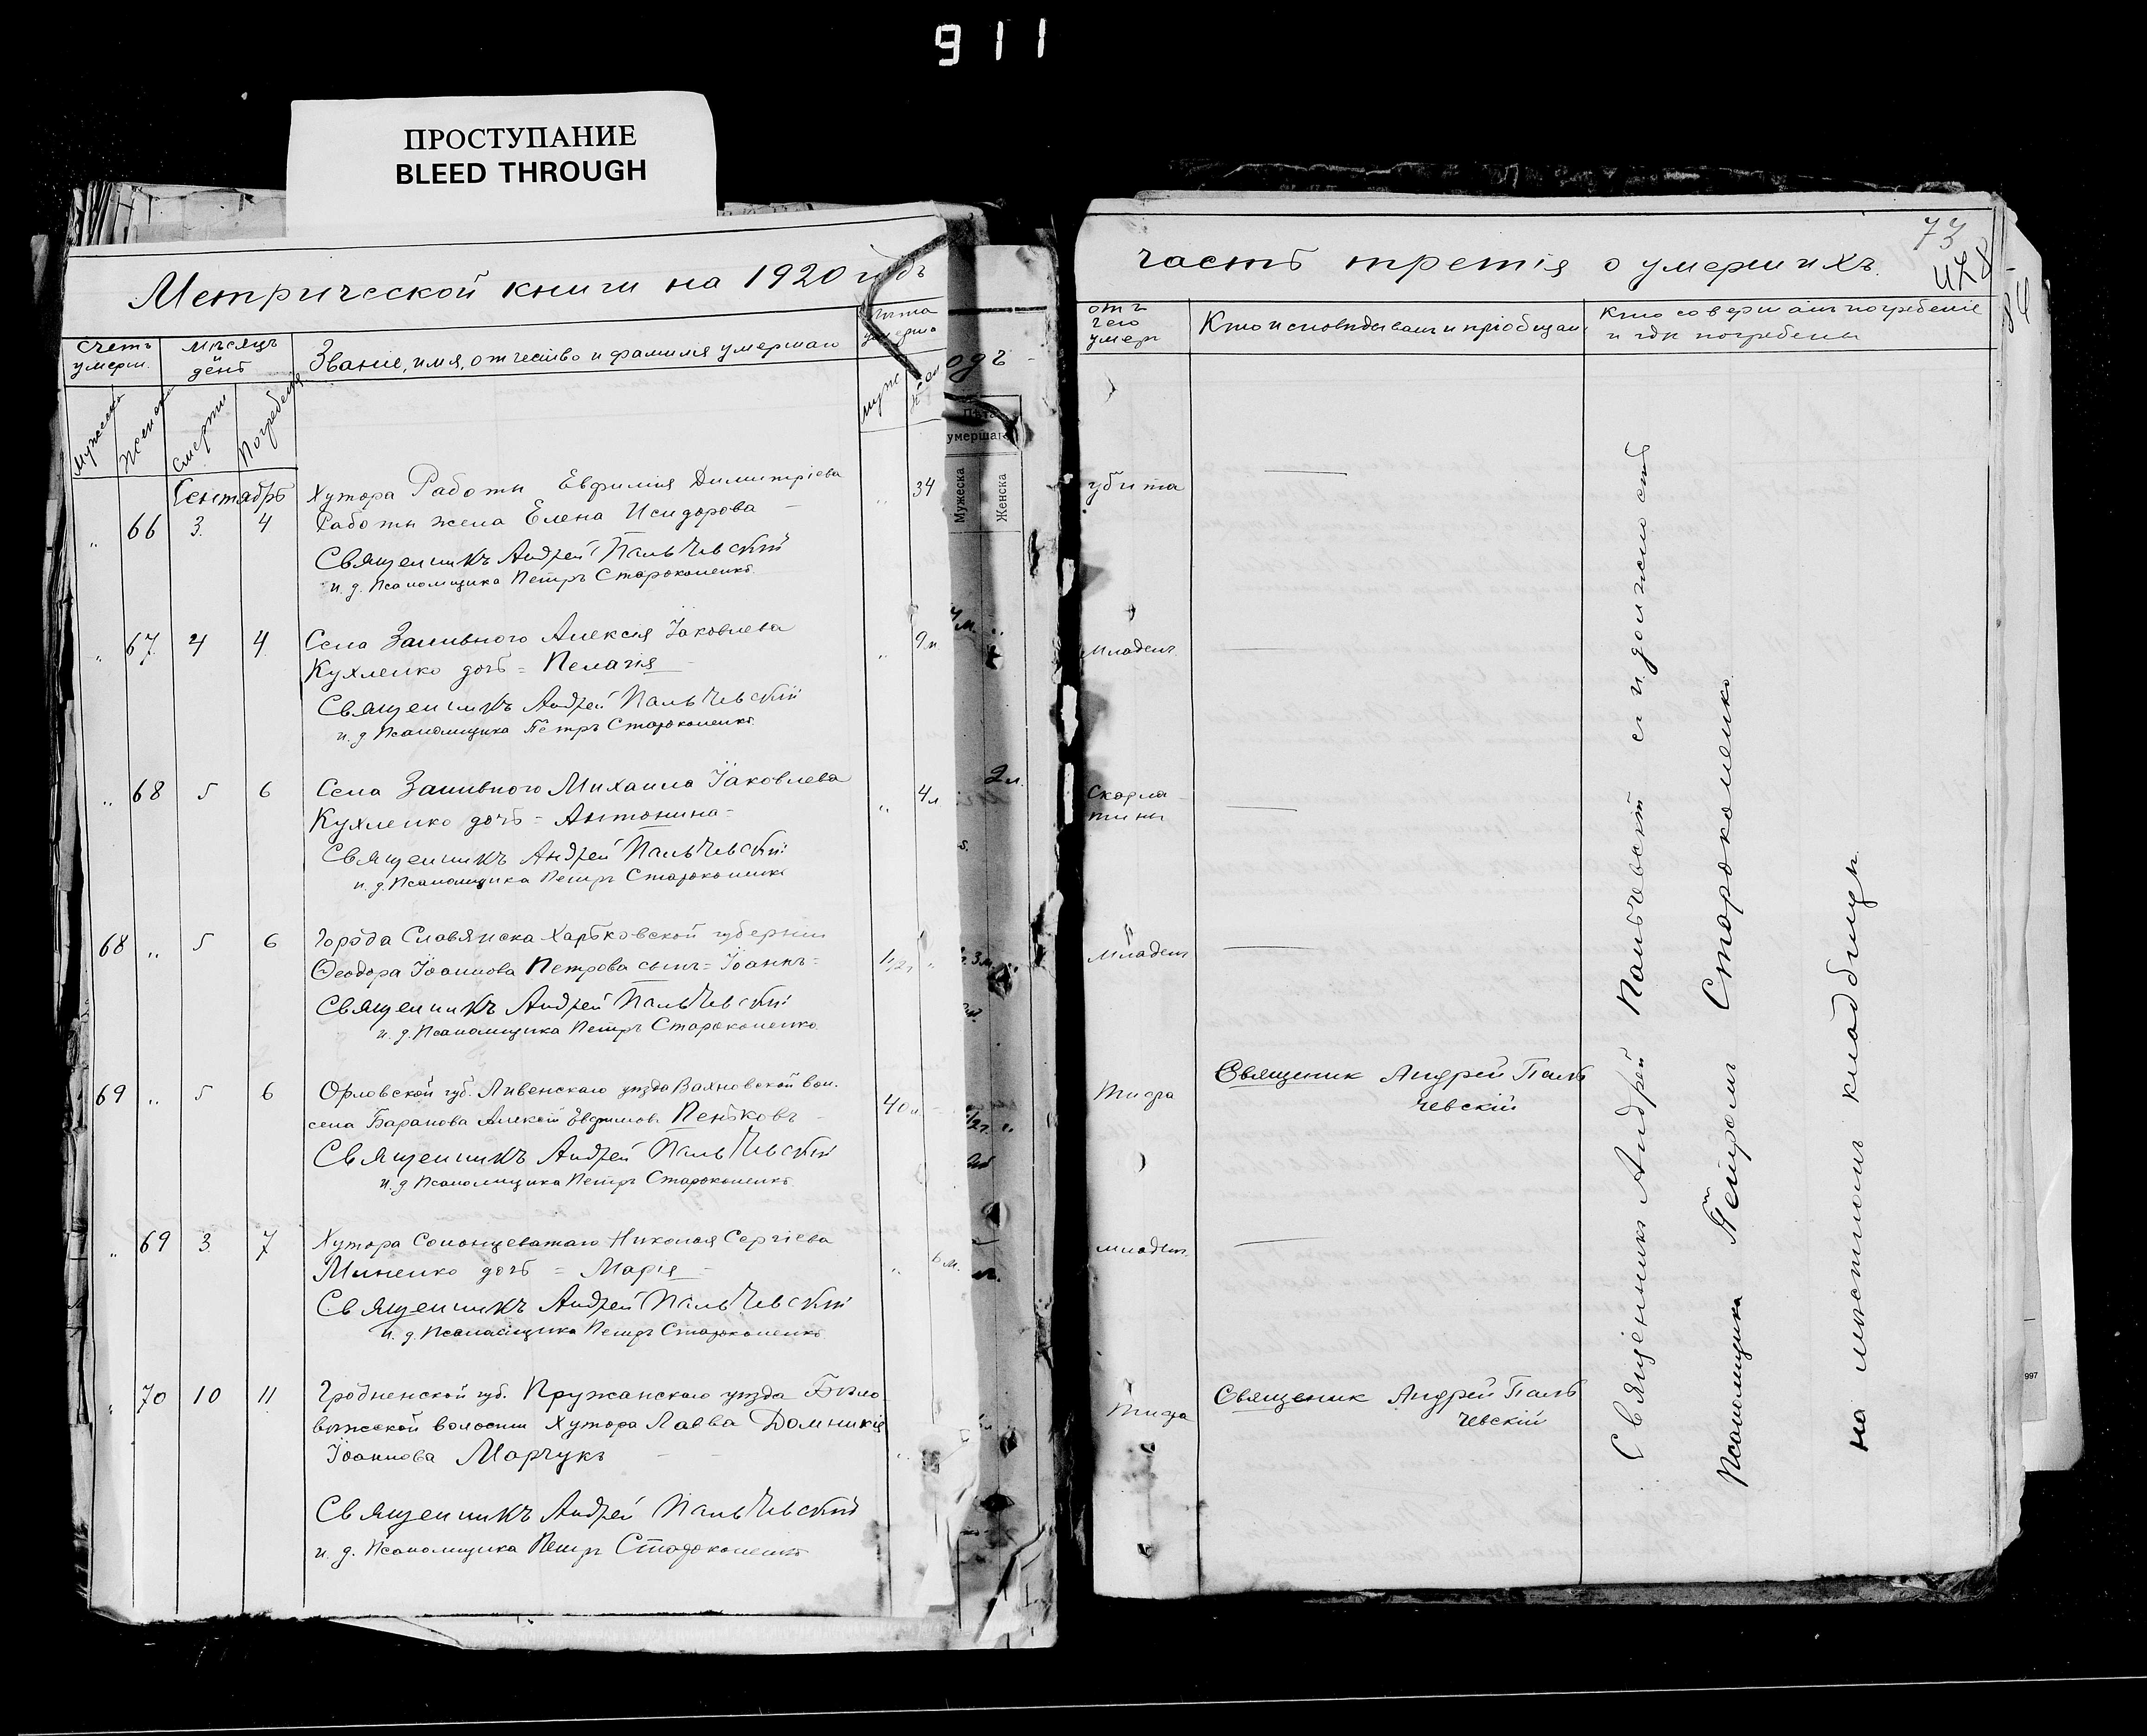 911
ПРОСТУПАНИЕ
BLEED THROUGH
Метрической книги на 1920 годъ
Счетъ умерш.
Мѣсяцъ день
Званіе, имя, отчество и фамилія умершаго
Лѣта умерша
Мужеска
Женска
Смерти
Погребенія
Муж
Жен
Сентябрь
Хутора Работы Евфимія Димитріева 34
" 66 3 4 Работы жена Елена Исидорова
Священникъ Андрей Пальчевскій
и. д. Псаломщика Петръ Староконенко
" 67 4 4 Села Заливного Алексія Іаковлева " 9 м
Кухленко дочь = Пелагія
Священникъ Андрей Пальчевскій
и. д. Псаломщика Петръ Староконенко
" 68 5 6 Села Заливного Михаила Іаковлева " 4 л
Кухленко дочь = Антонина =
Священникъ Андрей Пальчевскій
и. д. Псаломщика Петръ Староконенко
68 " 5 6 Города Славянска Харьковской губерніи
Ѳеодора Іоаннова Петрова сынъ = Іоаннъ = 1/2 г "
Священникъ Андрей Пальчевскій
и. д. Псаломщика Петръ Староконенко
69 " 5 6 Орловской губ. Ливенскаго уѣзда вол.
села Баранова Алексій Евфимов. Пеньковъ 40 л
Священникъ Андрей Пальчевскій
и. д. Псаломщика Петръ Староконенко
" 69 3 7 Хутора Солонцеватаго Николая Сергіева
Миненко дочь = Марія = " 6 м.
Священникъ Андрей Пальчевскій
и. д. Псаломщика Петръ Староконенко
" 70 10 11 Гродненской губ. Пружанскаго уѣзда Бѣло
вѣжской волости Хутора Домникія
Іоаннова Марчукъ
Священникъ Андрей Пальчевскій
и. д. Псаломщика Петръ Староконенко
одъ
Лѣта
умершаго
Мужеска
Женска
часть третія о умершихъ.
73
отъ чего умеръ
Кто исповѣдывалъ и пріобщалъ
Кто совершалъ погребеніе
и гдѣ погребены
убита
Младенч.
Скарла
тины
Младенч
Тифа
Священик Андрей Паль
чевскій
младенч.
Тифа
Священик Андрей Паль
чевскій
Священникъ Андрей Пальчевскій съ и. должность
Псаломщика Петромъ Староконенко
на мѣстномъ кладбищѣ
997